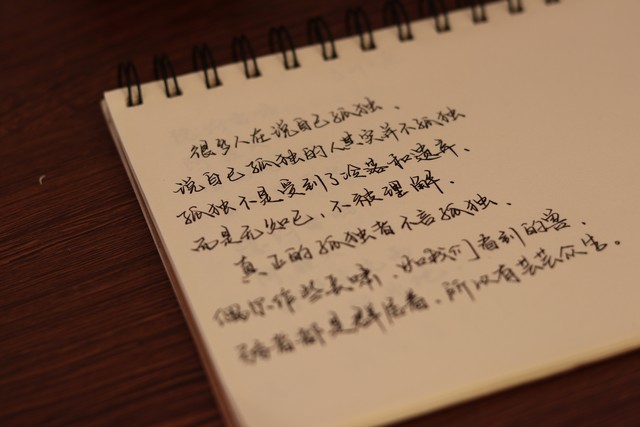 很多人在说自己孤独、
说自己孤独的人其实并不孤独
孤独不是受到了冷落和遗弃、
而是无知己、不被理解、
真正的孤独者不言孤独、
偶尔作些长啸、如我们看到的害、
弱者都是群居者、所以有芸芸众生。